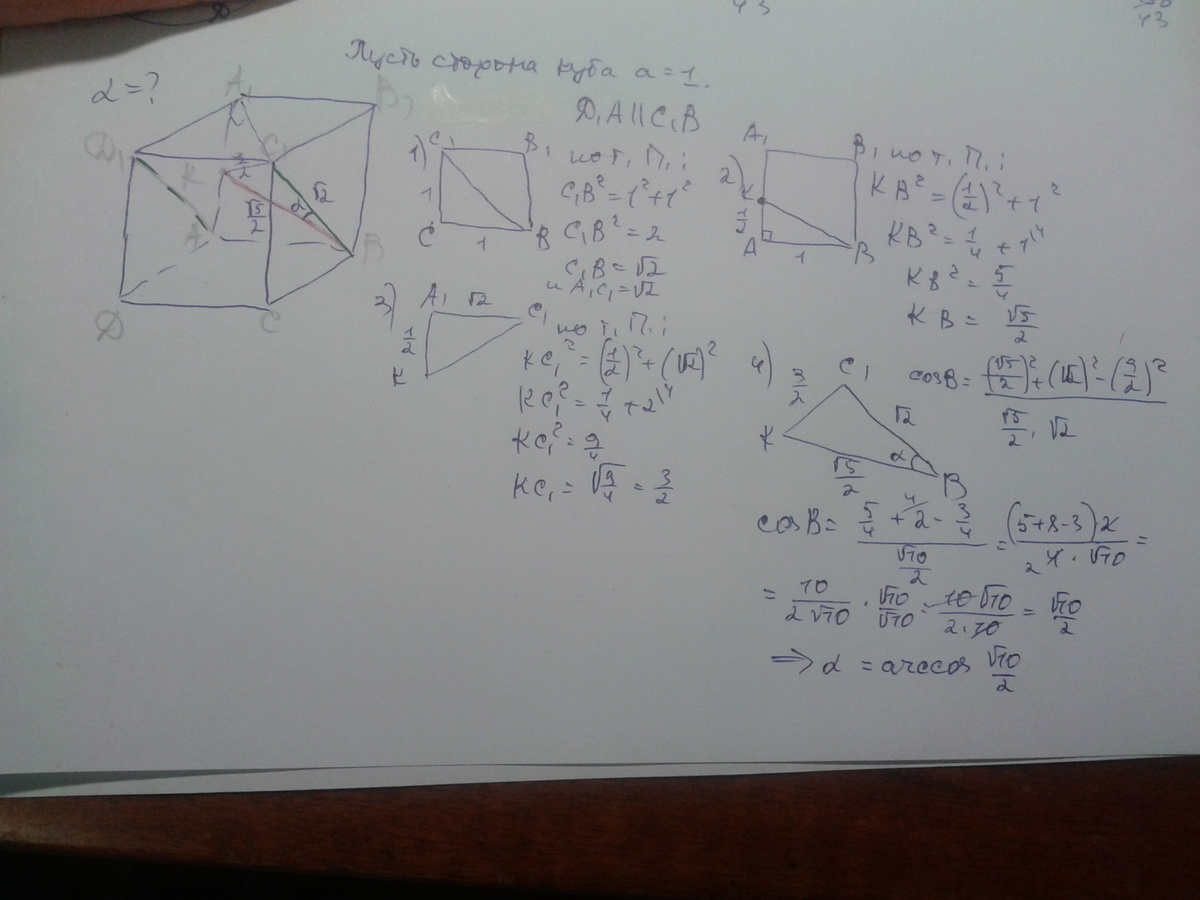 43
43
Пусть сторона куба a = 1.
α = ?
D₁A || C₁B
A₁
B₁
D₁
C₁
K
3/2
√2
√5/2
α
A
B
D
C
1)
C₁ B₁
1
C 1 B
по т. П.:
C₁B² = 1² + 1²
C₁B² = 2
C₁B = √2
и A₁C₁ = √2
2)
A₁ B₁
K
1/2
A 1 B
по т. П.:
KB² = (1/2)² + 1²
KB² = 1/4 + 1\⁴
KB² = 5/4
KB = √5/2
3)
A₁ √2 C₁
1/2
K
по т. П.:
KC₁² = (1/2)² + (√2)²
KC₁² = 1/4 + 2\⁴
KC₁² = 9/4
KC₁ = √9/4 = 3/2
4)
C₁
3/2
√2
K
α
√5/2
B
cosB = ((√5/2)² + (√2)² - (9/2)²) / (√5/2 · √2)
cosB = (5/4 + ⁴/2 - 3/4) / (√10/2) = (5+8-3)2 / (₂4 · √10) =
= 10/(2√10) · √10/√10 = 10√10/(2·10) = √10/2
⟹ α = arccos √10/2